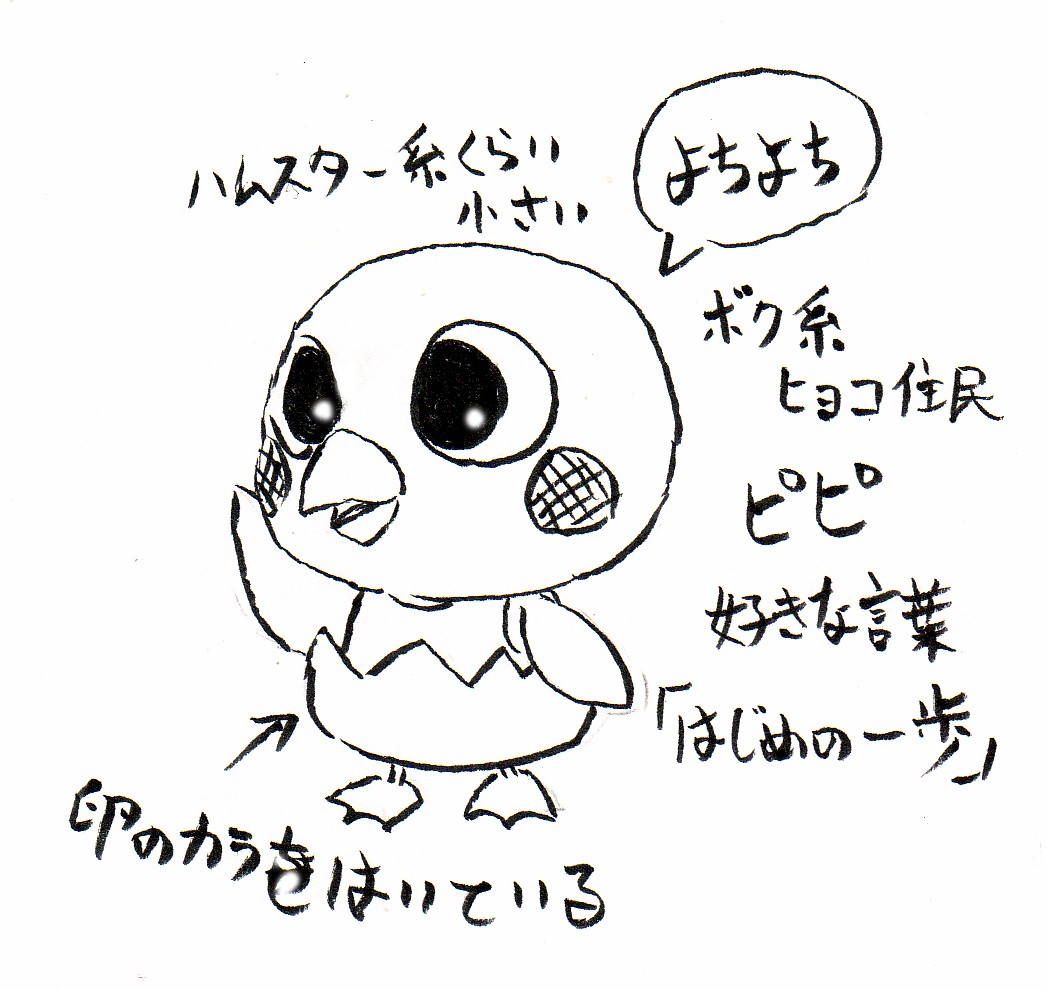 ハムスター系くらい
小さい
よちよち
ボク系
ヒヨコ住民
ピピ
好きな言葉
「はじめの一歩」
卵のカラをはいている